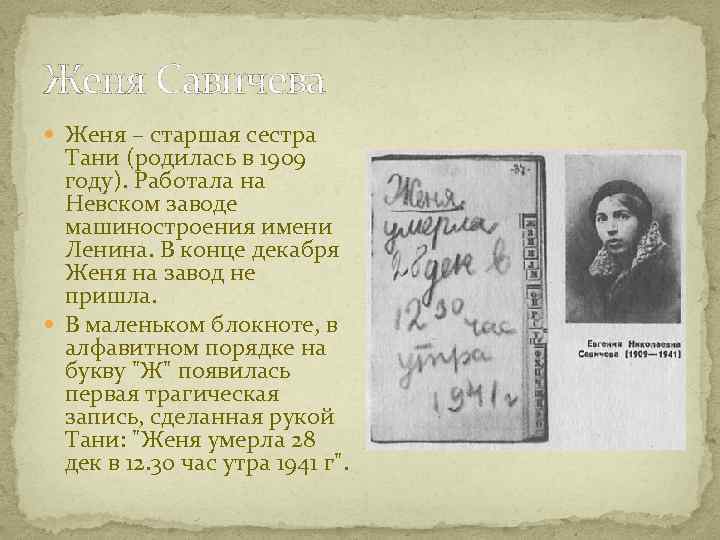 Женя Савичева
Женя – старшая сестра
Тани (родилась в 1909
году). Работала на
Невском заводе
машиностроения имени
Ленина. В конце декабря
Женя на завод не
пришла.
В маленьком блокноте, в
алфавитном порядке на
букву "Ж" появилась
первая трагическая
запись, сделанная рукой
Тани: "Женя умерла 28
дек в 12.30 час утра 1941 г".
Женя
умерла
28 дек в
12 30 час
утра
1941 г
Евгения Николаевна
Савичева (1909—1941)